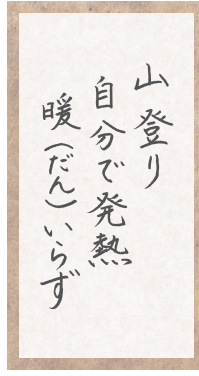 山登り
自分で発熱
暖(だん)いらず